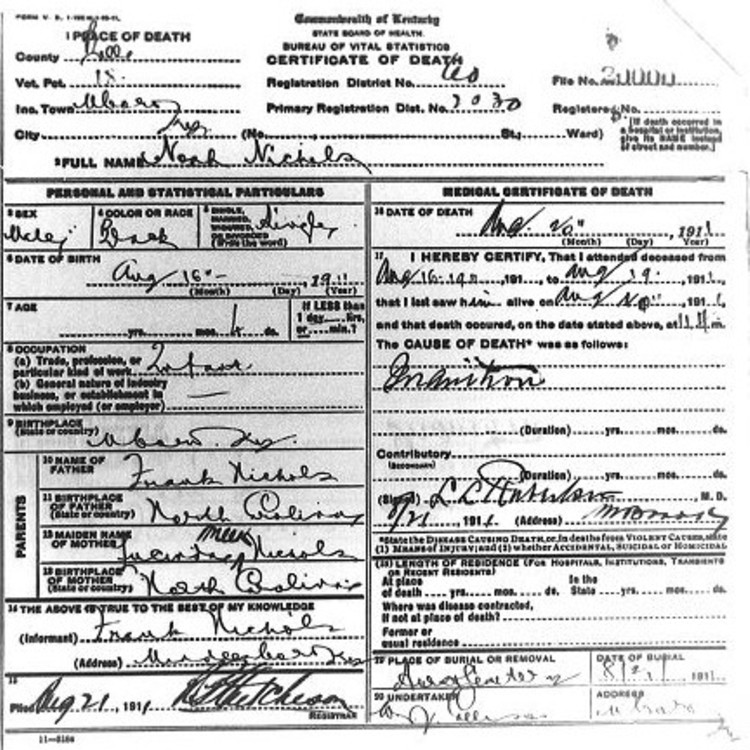 FORM V. S. 1
Commonwealth of Kentucky
STATE BOARD OF HEALTH.
BUREAU OF VITAL STATISTICS
CERTIFICATE OF DEATH
1 PLACE OF DEATH
County
Vot. Pct. 18
Inc. Town M'boro
City Ky. (No. St.; Ward)
Registration District No.
Primary Registration Dist. No. 7030
File No.
Registered No.
[If death occurred in a hospital or institution, give its NAME instead of street and number.]
2 FULL NAME Noah Nichols
PERSONAL AND STATISTICAL PARTICULARS
3 SEX Male
4 COLOR OR RACE Black
5 SINGLE, MARRIED, WIDOWED, OR DIVORCED (Write the word) Single
6 DATE OF BIRTH
Aug 16 1911
(Month) (Day) (Year)
7 AGE
yrs. mos. 4 ds.
If LESS than 1 day hrs. or min.?
8 OCCUPATION
(a) Trade, profession, or particular kind of work Infant
(b) General nature of industry
business, or establishment in
which employed (or employer)
9 BIRTHPLACE
(State or country) M'boro Ky.
PARENTS
10 NAME OF FATHER Frank Nichols
11 BIRTHPLACE OF FATHER (State or country) North Carolina
12 MAIDEN NAME OF MOTHER Lucinda Nichols
13 BIRTHPLACE OF MOTHER (State or country) North Carolina
14 THE ABOVE IS TRUE TO THE BEST OF MY KNOWLEDGE
(Informant) Frank Nichols
(Address) Middlesboro Ky
15
Filed Aug 21, 1911 Hutcheson
REGISTRAR
11—3184
MEDICAL CERTIFICATE OF DEATH
16 DATE OF DEATH
Aug. 20", 1911
(Month) (Day) (Year)
17 I HEREBY CERTIFY, That I attended deceased from
Aug 16, 191 , to Aug 19, 1911,
that I last saw him alive on Aug 20", 1911,
and that death occured, on the date stated above, at m.
The CAUSE OF DEATH* was as follows:
Inanition
(Duration) yrs. mos. ds.
Contributory
(SECONDARY)
(Duration) yrs. mos. ds.
(Signed) M. D.
8/21, 1911. (Address)
*State the DISEASE CAUSING DEATH, or, in deaths from VIOLENT CAUSES, state
(1) MEANS OF INJURY; and (2) whether ACCIDENTAL, SUICIDAL or HOMICIDAL
(18) LENGTH OF RESIDENCE (FOR HOSPITALS, INSTITUTIONS, TRANSIENTS
OR RECENT RESIDENTS)
At place of death yrs. mos. ds. In the State yrs. mos. ds.
Where was disease contracted,
if not at place of death?
Former or
usual residence
19 PLACE OF BURIAL OR REMOVAL
Cemetery
DATE OF BURIAL
8/21 1911
20 UNDERTAKER
ADDRESS
M'boro